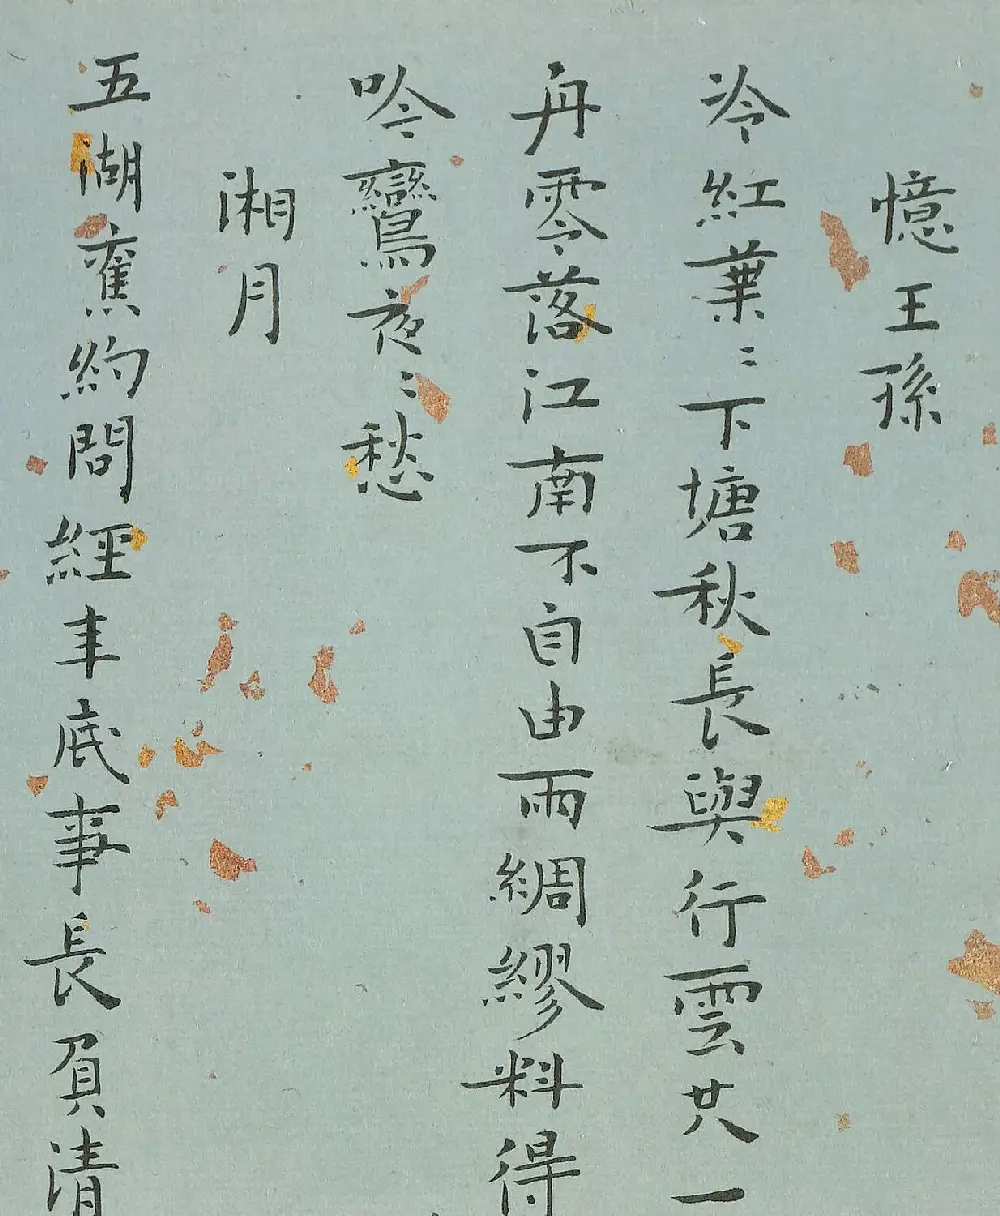 憶王孫
冷紅葉〻下塘秋長與行雲共一
舟零落江南不自由雨綢繆料得
吟鸞夜〻愁
湘月
五湖舊約問經年底事長負清